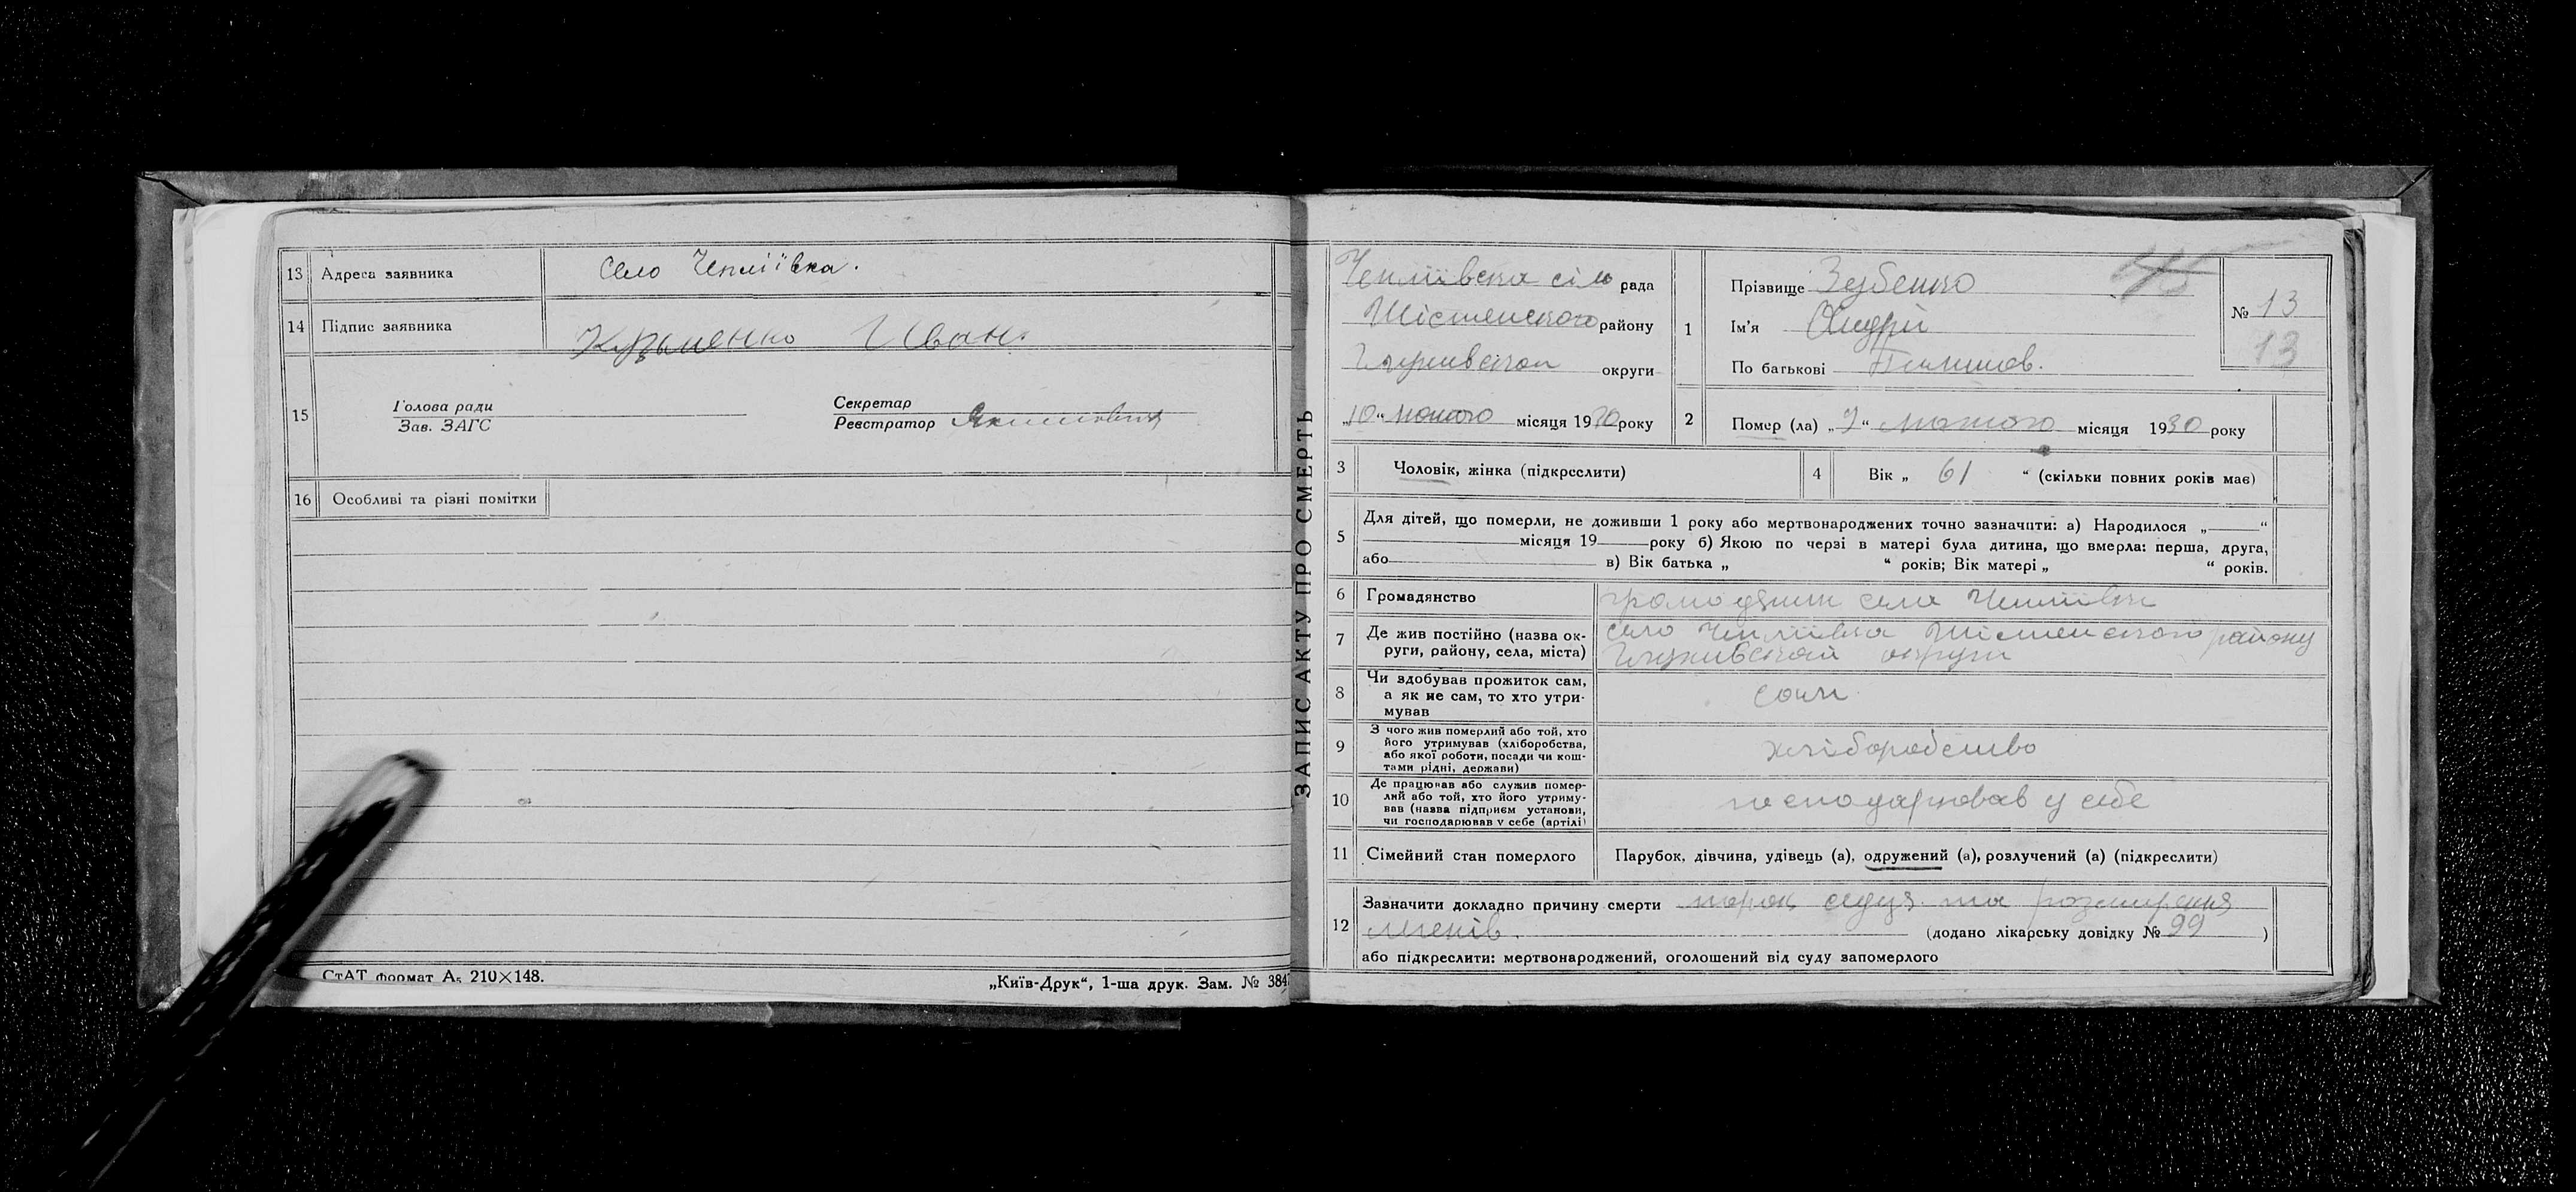 13 Адреса заявника Село Чепліївка.
14 Підпис заявника Кузьменко Иван.
15 Голова ради
Зав. ЗАГС
Секретар
Реєстратор
16 Особливі та різні помітки
СтАТ формат А₅ 210×148.
„Київ-Друк“, 1-ша друк. Зам. № 384
ЗАПИС АКТУ ПРО СМЕРТЬ
Чепліївська сіль рада
району
округи
„10“ лютого місяця 1930 року
1 Прізвище Зубенко
Ім'я Андрій
По батькові
№ 13
13
2 Помер (ла) „9“ лютого місяця 1930 року
3 Чоловік, жінка (підкреслити)
4 Вік „ 61 “ (скільки повних років має)
5 Для дітей, що померли, не доживши 1 року або мертвонароджених точно зазначити: а) Народилося „ “
місяця 19 року б) Якою по черзі в матері була дитина, що вмерла: перша, друга,
або в) Вік батька „ “ років; Вік матері „ “ років.
6 Громадянство громадянин села Чепліївки
7 Де жив постійно (назва ок- село Чепліївка району
руги, району, села, міста) Глухівської округи
8 Чи здобував прожиток сам,
а як не сам, то хто утри- сам
мував
9 З чого жив померлий або той, хто
його утримував (хліборобства, хліборобство
або якої роботи, посади чи кош-
тами рідні, держави)
10 Де працював або служив помер-
лий або той, хто його утриму- господарював у себе
вав (назва підприєм установи,
чи господарював у себе (артілі)
11 Сімейний стан померлого Парубок, дівчина, удівець (а), одружений (а), розлучений (а) (підкреслити)
12 Зазначити докладно причину смерти порок серця та розширення
(додано лікарську довідку № 99 )
або підкреслити: мертвонароджений, оголошений від суду запомерлого